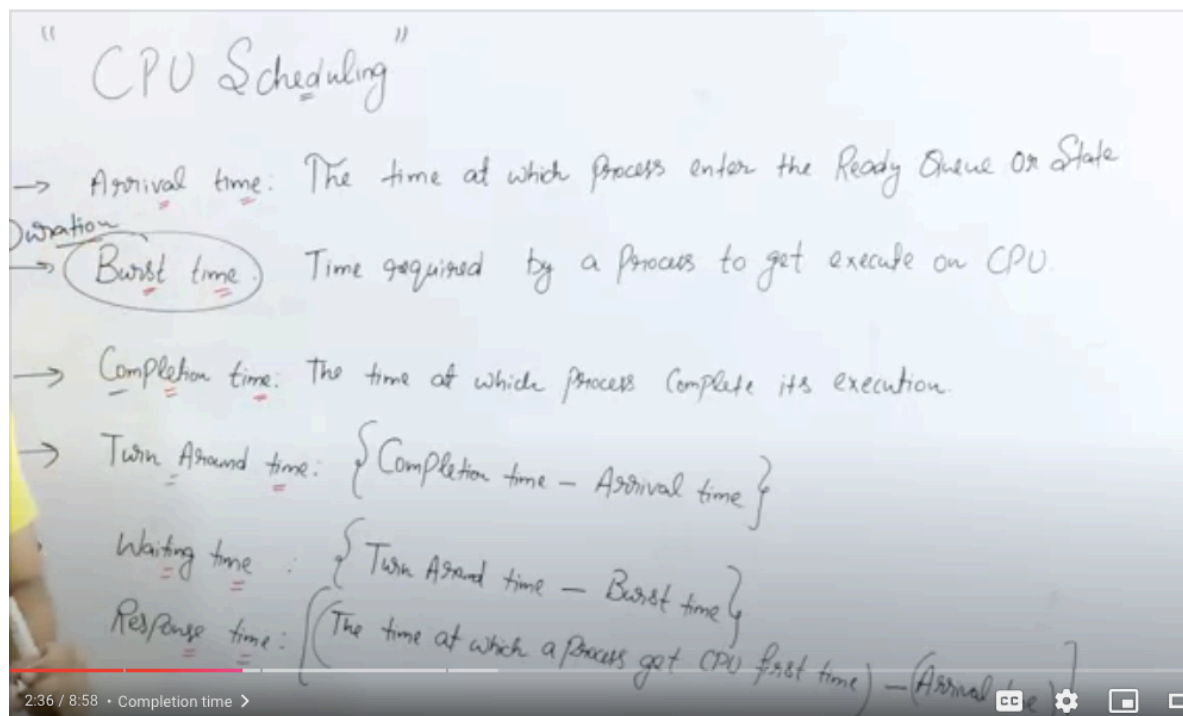 " CPU Scheduling "
→ Arrival time: The time at which Process enter the Ready Queue or State
Duration
→ Burst time. Time required by a Process to get execute on CPU.
→ Completion time: The time at which process Complete its execution.
→ Turn Around time: {Completion time - Arrival time}
Waiting time : {Turn Around time - Burst time}
Response time: [(The time at which a Process get CPU first time) - (Arrival
2:36 / 8:58 • Completion time >
CC